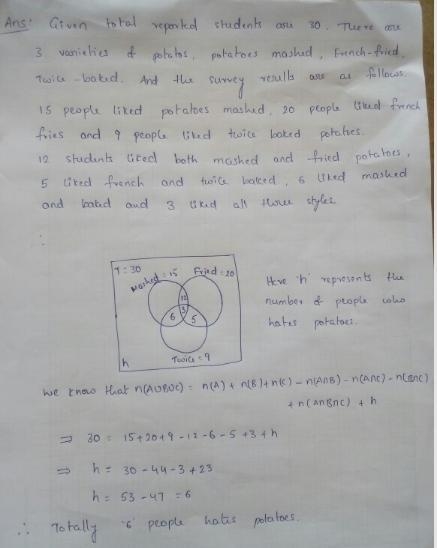 Ans: Given total reported students are 30. There are
3 varieties of potatos, potatoes mashed, French-fried,
Twice-baked. And the survey results are as follows.
15 people liked potatoes mashed, 20 people liked french
fries and 9 people liked twice baked potatoes.
12 students liked both mashed and fried potatoes,
5 liked french and twice baked, 6 liked mashed
and baked and 3 liked all three styles
∴
T = 30
Mashed = 15 Fried = 20
12
3
6 5
Twice = 9
h
Here 'h' represents the
number of people who
hates potatoes.
we know that n(AUBUC) = n(A) + n(B) + n(C) - n(A∩B) - n(A∩C) - n(B∩C)
+ n(A∩B∩C) + h
⇒ 30 = 15+20+9-12-6-5+3+h
⇒ h = 30-44-3+23
h = 53-47 = 6
∴ Totally '6' people hates potatoes.